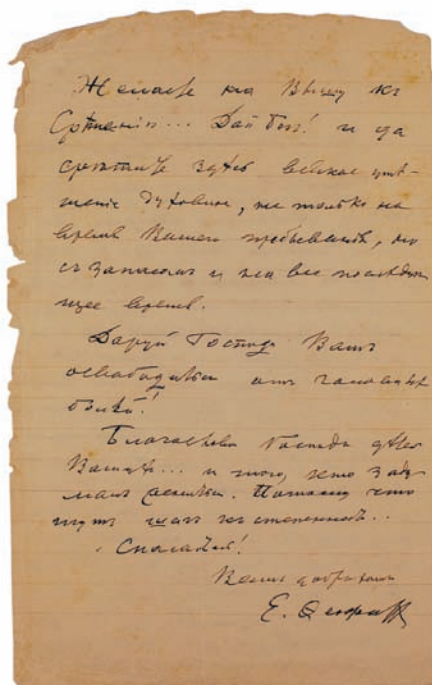 Желаете на Вышу къ
Срѣтенію... Дай Богъ! и да
срѣтите здѣсь великое утѣ-
шеніе духовное, не только на
время Вашего пребыванія, но
съ запасомъ и на все послѣдую-
щее время.
Даруй Господи Вамъ
освободиться отъ
Благослови Господи дѣтей
Вашихъ... и того, кто
Потому что
тутъ шагъ къ степенности..
Спасайтесь!
Вашъ доброхотъ
Е. Ѳеофанъ